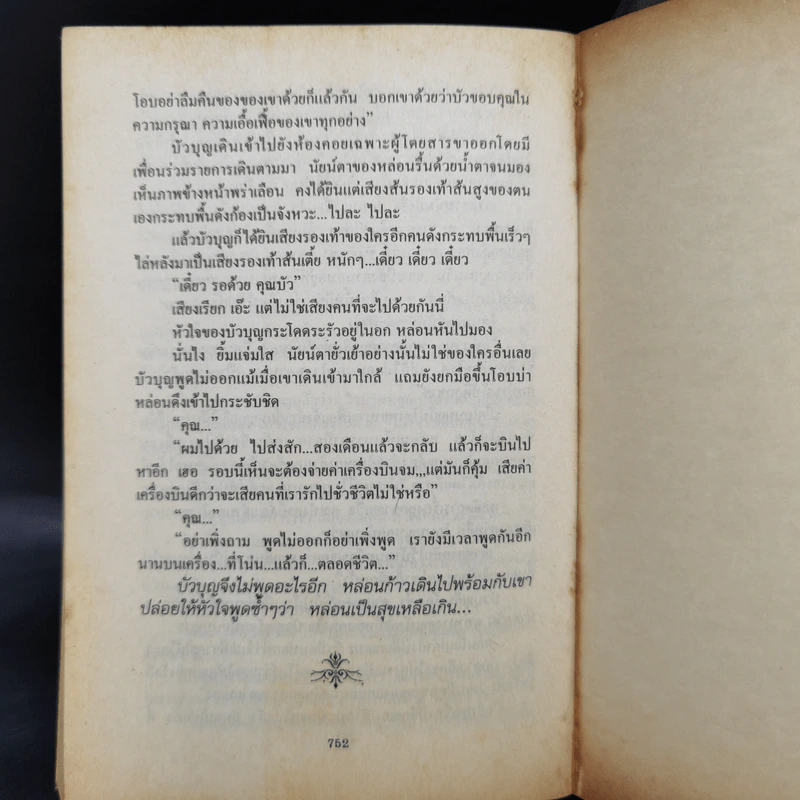 โอบอย่าลืมคืนของของเขาด้วยก็แล้วกัน บอกเขาด้วยว่าบัวขอบคุณใน
ความกรุณา ความเอื้อเฟื้อของเขาทุกอย่าง”
บัวบุญเดินเข้าไปยังห้องคอยเฉพาะผู้โดยสารขาออกโดยมี
เพื่อนร่วมรายการเดินตามมา นัยน์ตาของหล่อนรื้นด้วยน้ำตาจนมอง
เห็นภาพข้างหน้าพร่าเลือน คงได้ยินแต่เสียงส้นรองเท้าส้นสูงของตน
เองกระทบพื้นดังก้องเป็นจังหวะ...ไปละ ไปละ
แล้วบัวบุญก็ได้ยินเสียงรองเท้าของใครอีกคนดังกระทบพื้นเร็วๆ
ไล่หลังมาเป็นเสียงรองเท้าส้นเตี้ย หนักๆ...เดี๋ยว เดี๋ยว เดี๋ยว
“เดี๋ยว รอด้วย คุณบัว”
เสียงเรียก เอ๊ะ แต่ไม่ใช่เสียงคนที่จะไปด้วยกันนี่
หัวใจของบัวบุญกระโดดระรัวอยู่ในอก หล่อนหันไปมอง
นั่นไง ยิ้มแจ่มใส นัยน์ตายั่วเย้าอย่างนั้นไม่ใช่ของใครอื่นเลย
บัวบุญพูดไม่ออกแม้เมื่อเขาเดินเข้ามาใกล้ แถมยังยกมือขึ้นโอบบ่า
หล่อนดึงเข้าไปกระชับชิด
“คุณ...”
“ผมไปด้วย ไปส่งสัก...สองเดือนแล้วจะกลับ แล้วก็จะบินไป
หาอีก เฮอ รอบนี้เห็นจะต้องจ่ายค่าเครื่องบินจม,,,แต่มันก็คุ้ม เสียค่า
เครื่องบินดีกว่าจะเสียคนที่เรารักไปชั่วชีวิตไม่ใช่หรือ”
“คุณ...”
“อย่าเพิ่งถาม พูดไม่ออกก็อย่าเพิ่งพูด เรายังมีเวลาพูดกันอีก
นานบนเครื่อง...ที่โน่น...แล้วก็...ตลอดชีวิต...”
บัวบุญจึงไม่พูดอะไรอีก หล่อนก้าวเดินไปพร้อมกับเขา
ปล่อยให้หัวใจพูดซ้ำๆว่า หล่อนเป็นสุขเหลือเกิน...
752